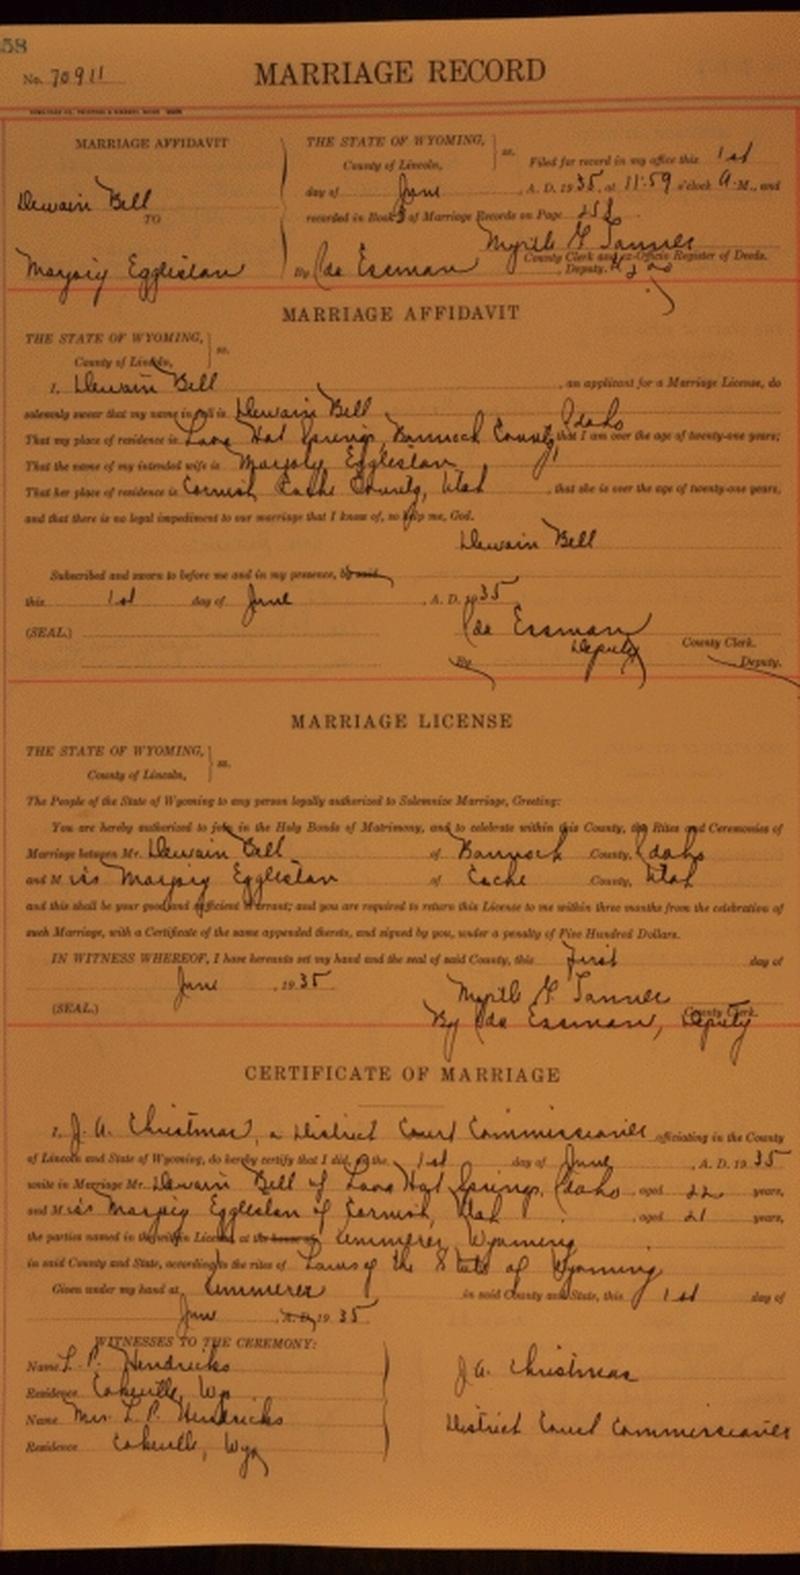 58
No. 70911
MARRIAGE RECORD
MARRIAGE AFFIDAVIT
Dewain Bell
TO
Marjory Eggleston
THE STATE OF WYOMING,
County of Lincoln, ss.
Filed for record in my office this 1st
day of June, A. D. 1935, at 11:59 o'clock A.M., and
recorded in Book 3 of Marriage Records on Page 258
Myrtle G Tanner
County Clerk and ex-Officio Register of Deeds.
By Ida Essman, Deputy.
MARRIAGE AFFIDAVIT
THE STATE OF WYOMING,
County of Lincoln, ss.
I, Dewain Bell, an applicant for a Marriage License, do
solemnly swear that my name in full is Dewain Bell
That my place of residence is Lava Hot Springs, Bannock County, Idaho that I am over the age of twenty-one years;
That the name of my intended wife is Marjory Eggleston
That her place of residence is Cornish Cache County, Utah, that she is over the age of twenty-one years,
and that there is no legal impediment to our marriage that I know of, so help me, God.
Dewain Bell
Subscribed and sworn to before me and in my presence, by said
this 1st day of June, A. D. 1935
(SEAL.)
Ida Essman
Deputy County Clerk.
By Deputy.
MARRIAGE LICENSE
THE STATE OF WYOMING,
County of Lincoln, ss.
The People of the State of Wyoming to any person legally authorized to Solemnize Marriage, Greeting:
You are hereby authorized to join in the Holy Bonds of Matrimony, and to celebrate within this County, the Rites and Ceremonies of
Marriage between Mr. Dewain Bell of Bannock County, Idaho
and Miss Marjory Eggleston of Cache County, Utah
and this shall be your good and sufficient warrant; and you are required to return this License to me within three months from the celebration of
such Marriage, with a Certificate of the same appended thereto, and signed by you, under a penalty of Five Hundred Dollars.
IN WITNESS WHEREOF, I have hereunto set my hand and the seal of said County, this First day of
June, 1935
(SEAL.)
Myrtle G Tanner
County Clerk.
By Ida Essman, Deputy
CERTIFICATE OF MARRIAGE
I, J. A. Christmas, a District Court Commissioner officiating in the County
of Lincoln and State of Wyoming, do hereby certify that I did, on the 1st day of June, A. D. 1935
unite in Marriage Mr. Dewain Bell of Lava Hot Springs, Idaho, aged 22 years,
and Miss Marjory Eggleston of Cornish, Utah, aged 21 years,
the parties named in the within License, at the house of Kemmerer Wyoming
in said County and State, according to the rites of Laws of the State of Wyoming
Given under my hand at Kemmerer in said County and State, this 1st day of
June, A. D. 1935
WITNESSES TO THE CEREMONY:
Name L. P. Hendricks
Residence Cokeville, Wyo
Name Mrs. L. P. Hendricks
Residence Cokeville, Wyo
J. A. Christmas
District Court Commissioner